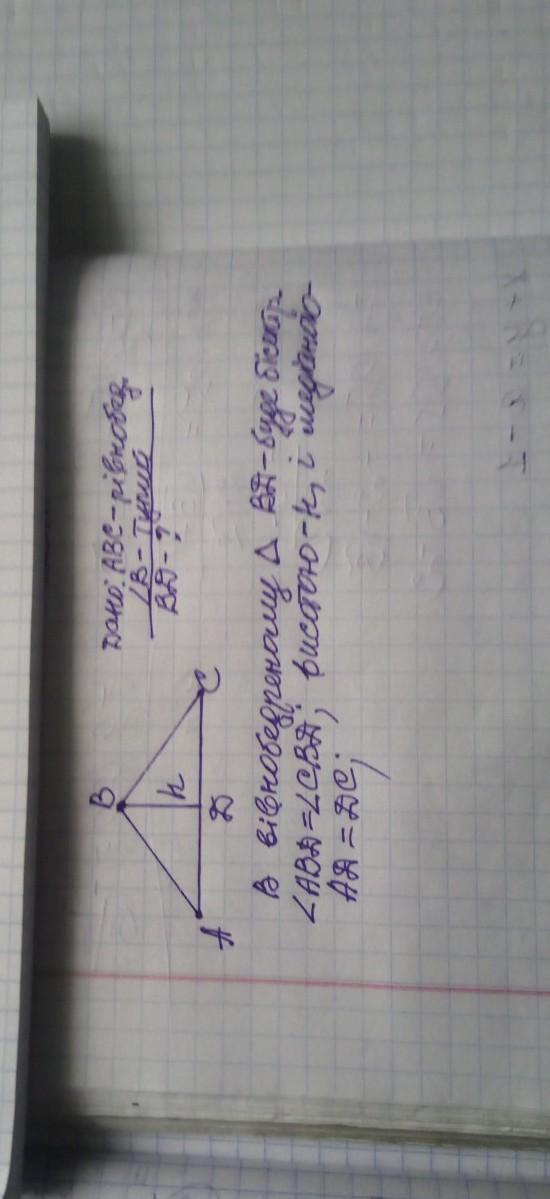 Дано: ABC - рівнобед.
∠B - Тупий
BD - ?
B
h
A
D
C
В вівнобедреному △ BD - буде бісектр.
∠ABD = ∠CBD; висотою - h, і медіаною -
AD = DC;